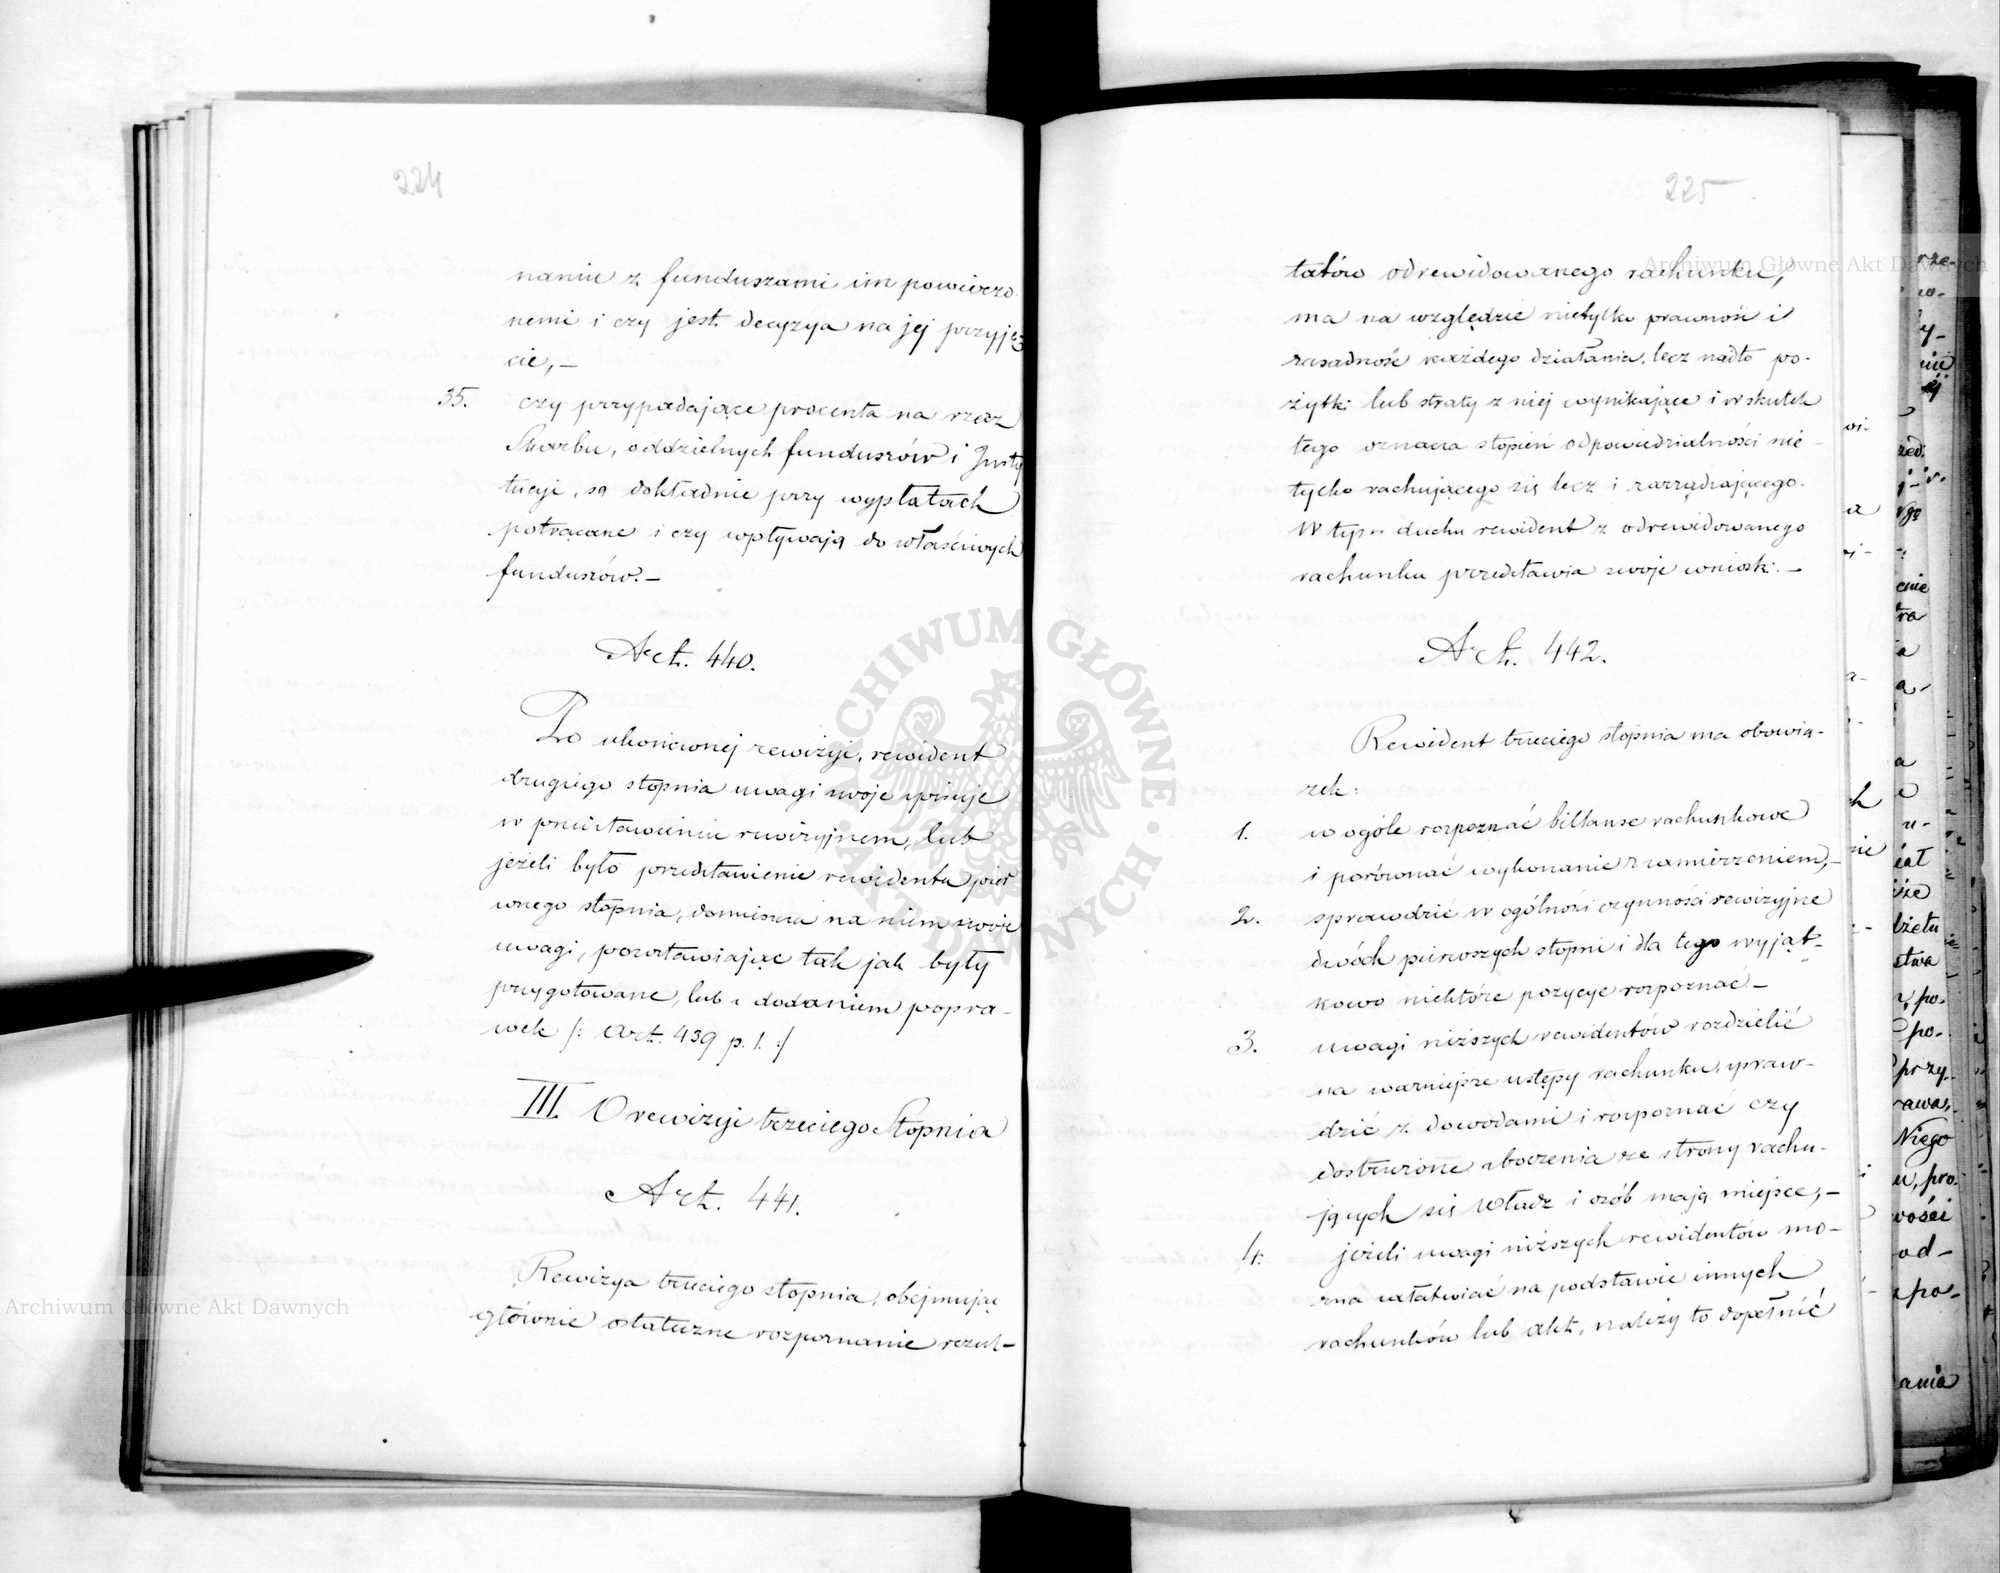 224
naniu z funduszami im powierzo-
nemi i czy jest decyzya na jej przyję-
cie, –
35. czy przypadające procenta na rzecz
Skarbu, oddzielnych funduszów i Insty
tucyi, są dokładnie przy wypłatach
potrącane i czy wpływają do właściwych
funduszów. –
Art. 440.
Po ukończonej rewizyi, rewident
drugiego stopnia uwagi swoje wpisuje
w przedstawieniu rewizyjnem, lub
jeżeli było przedstawienie rewidenta pier
wnego stopnia, domieszcza na niem swoje
uwagi, pozostawiając tak jak były
przygotowane, lub z dodaniem popra-
wek /: Art. 439 p. 1. :/
III. O rewizyi trzeciego Stopnia
Art. 441.
Rewizya trzeciego stopnia, obejmując
głównie ostateczne rozpoznanie rezul-
225
tatów odrewidowanego rachunku,
ma na względzie nietylko prawność i
zasadność każdego działania, lecz nadto po-
żytki lub straty z niej wynikające i w skutek
tego oznacza stopień odpowiedzialności nie-
tylko rachującego się lecz i zarządzającego.
W tym duchu rewident z odrewidowanego
rachunku przedstawia swoje wnioski. –
Art. 442.
Rewident trzeciego stopnia ma obowią-
zek:
1. w ogóle rozpoznać billanse rachunkowe
i porównać wykonanie z zamierzeniem, –
2. sprawdzić w ogólności czynności rewizyjne
dwóch pierwszych stopni i dla tego wyjąt-
kowo niektóre pozycye rozpoznać –
3. uwagi niższych rewidentów rozdzielić
na ważniejsze ustępy rachunku, spraw-
dzić z dowodami i rozpoznać czy
dostrzeżone zboczenia ze strony rachu-
jących się Władz i osób mają miejsce, –
4. jeżeli uwagi niższych rewidentów mo-
żna załatwiać na podstawie innych
rachunków lub akt, należy to dopełnić
Archiwum Główne Akt Dawnych
Archiwum Główne Akt Dawnych
ARCHIWUM GŁÓWNE · AKT DAWNYCH ·